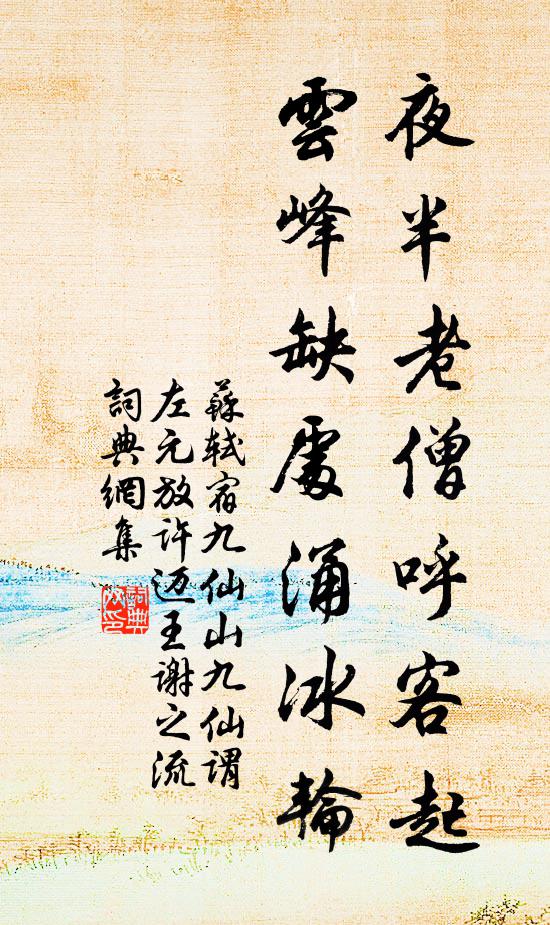 夜半老僧呼客起
雲峰缺處涌冰輪
蘇軾宿九仙山九仙謂
左元放許迈王謝之流
詞典網集